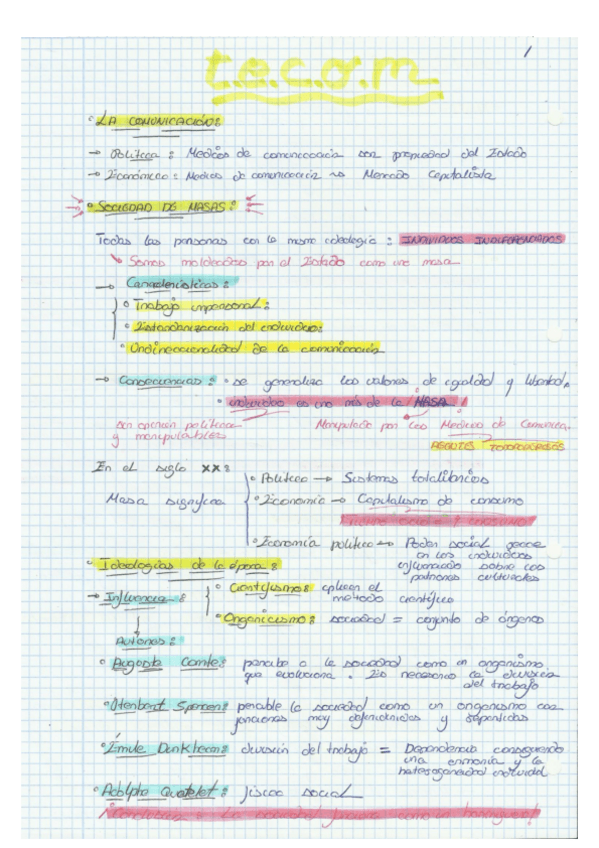 1
t.e.c.o.m
° LA COMUNICACIÓN:
→ Política : Medios de comunicación son propiedad del Estado
→ Económico : Medios de comunicación → Mercado Capitalista
° SOCIEDAD DE MASAS :
Todas las personas con la misma ideología : INDIVIDUOS INDIFERENCIADOS
Somos moldeados por el Estado como una masa
→ Características :
° Trabajo impersonal :
° Distandarización del individuo:
° Ondireccionalidad de la comunicación
→ Consecuencias : ° se generaliza los valores de igualdad y libertad.
° individuo es uno más de la MASA !
sin opinión política y manipulables
Manipulado por los Medios de Comunica.
AGENTES
En el siglo XX :
Masa significa
° Política → Sistemas totalitarios
° Economía → Capitalismo de consumo
° Economía política → Poder social
en los individuos
influenciado sobre los
patrones culturales
° Ideologías de la época :
→ Influencia :
° Cientifismo : aplican el
método científico
° Organicismo : sociedad = conjunto de órganos
Autores :
° Auguste Comte : percibe a la sociedad como un organismo
que evoluciona. Es necesario la división
del trabajo
° Herbert Spencer : percibe la sociedad como un organismo con
funciones muy definidas y repartidas
° Émile Durkheim : división del trabajo = Dependencia consiguiendo
una armonía y la
heterogeneidad individual
° Adolphe Quetelet : física social
La sociedad funciona como un